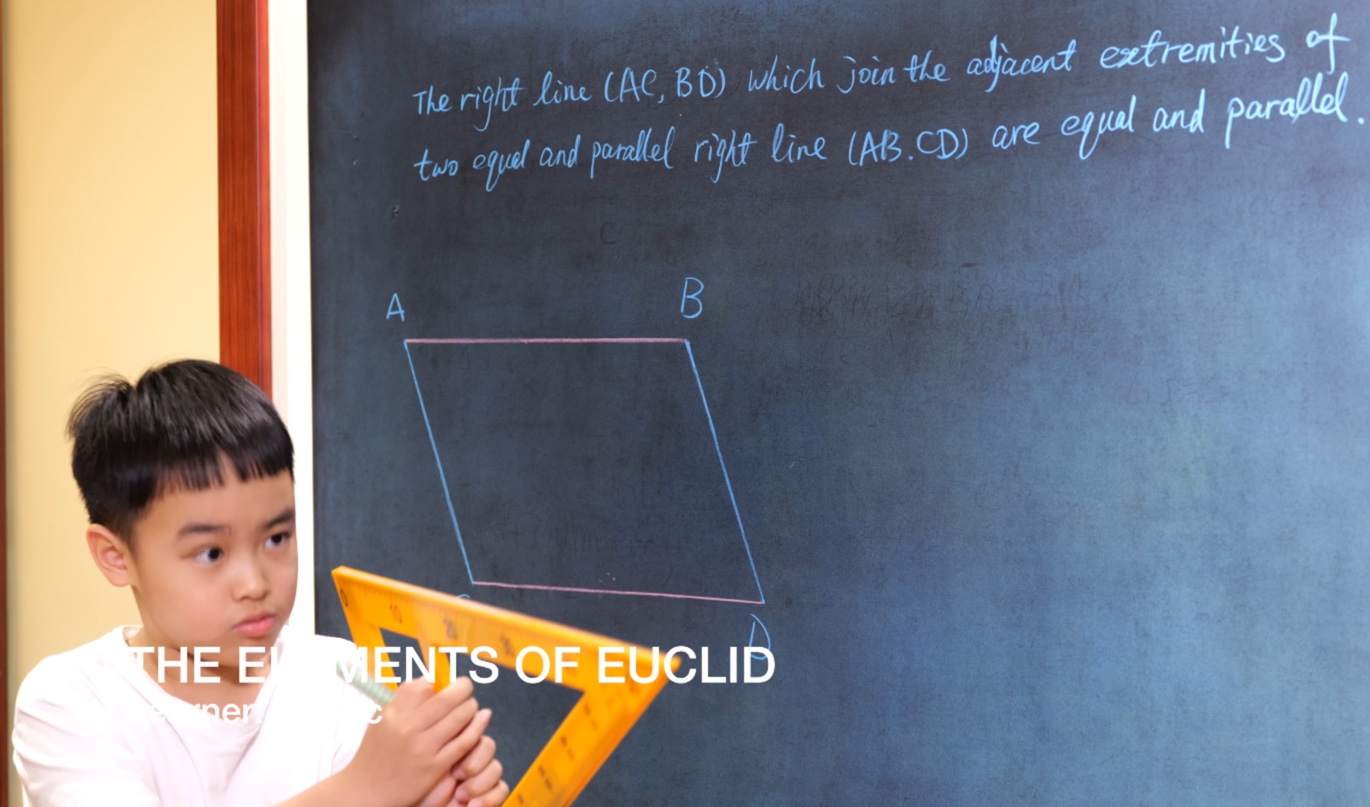 The right line (AC, BD) which join the adjacent extremities of
two equal and parallel right line (AB.CD) are equal and parallel.
A
B
D
0
10
20
THE ELEMENTS OF EUCLID